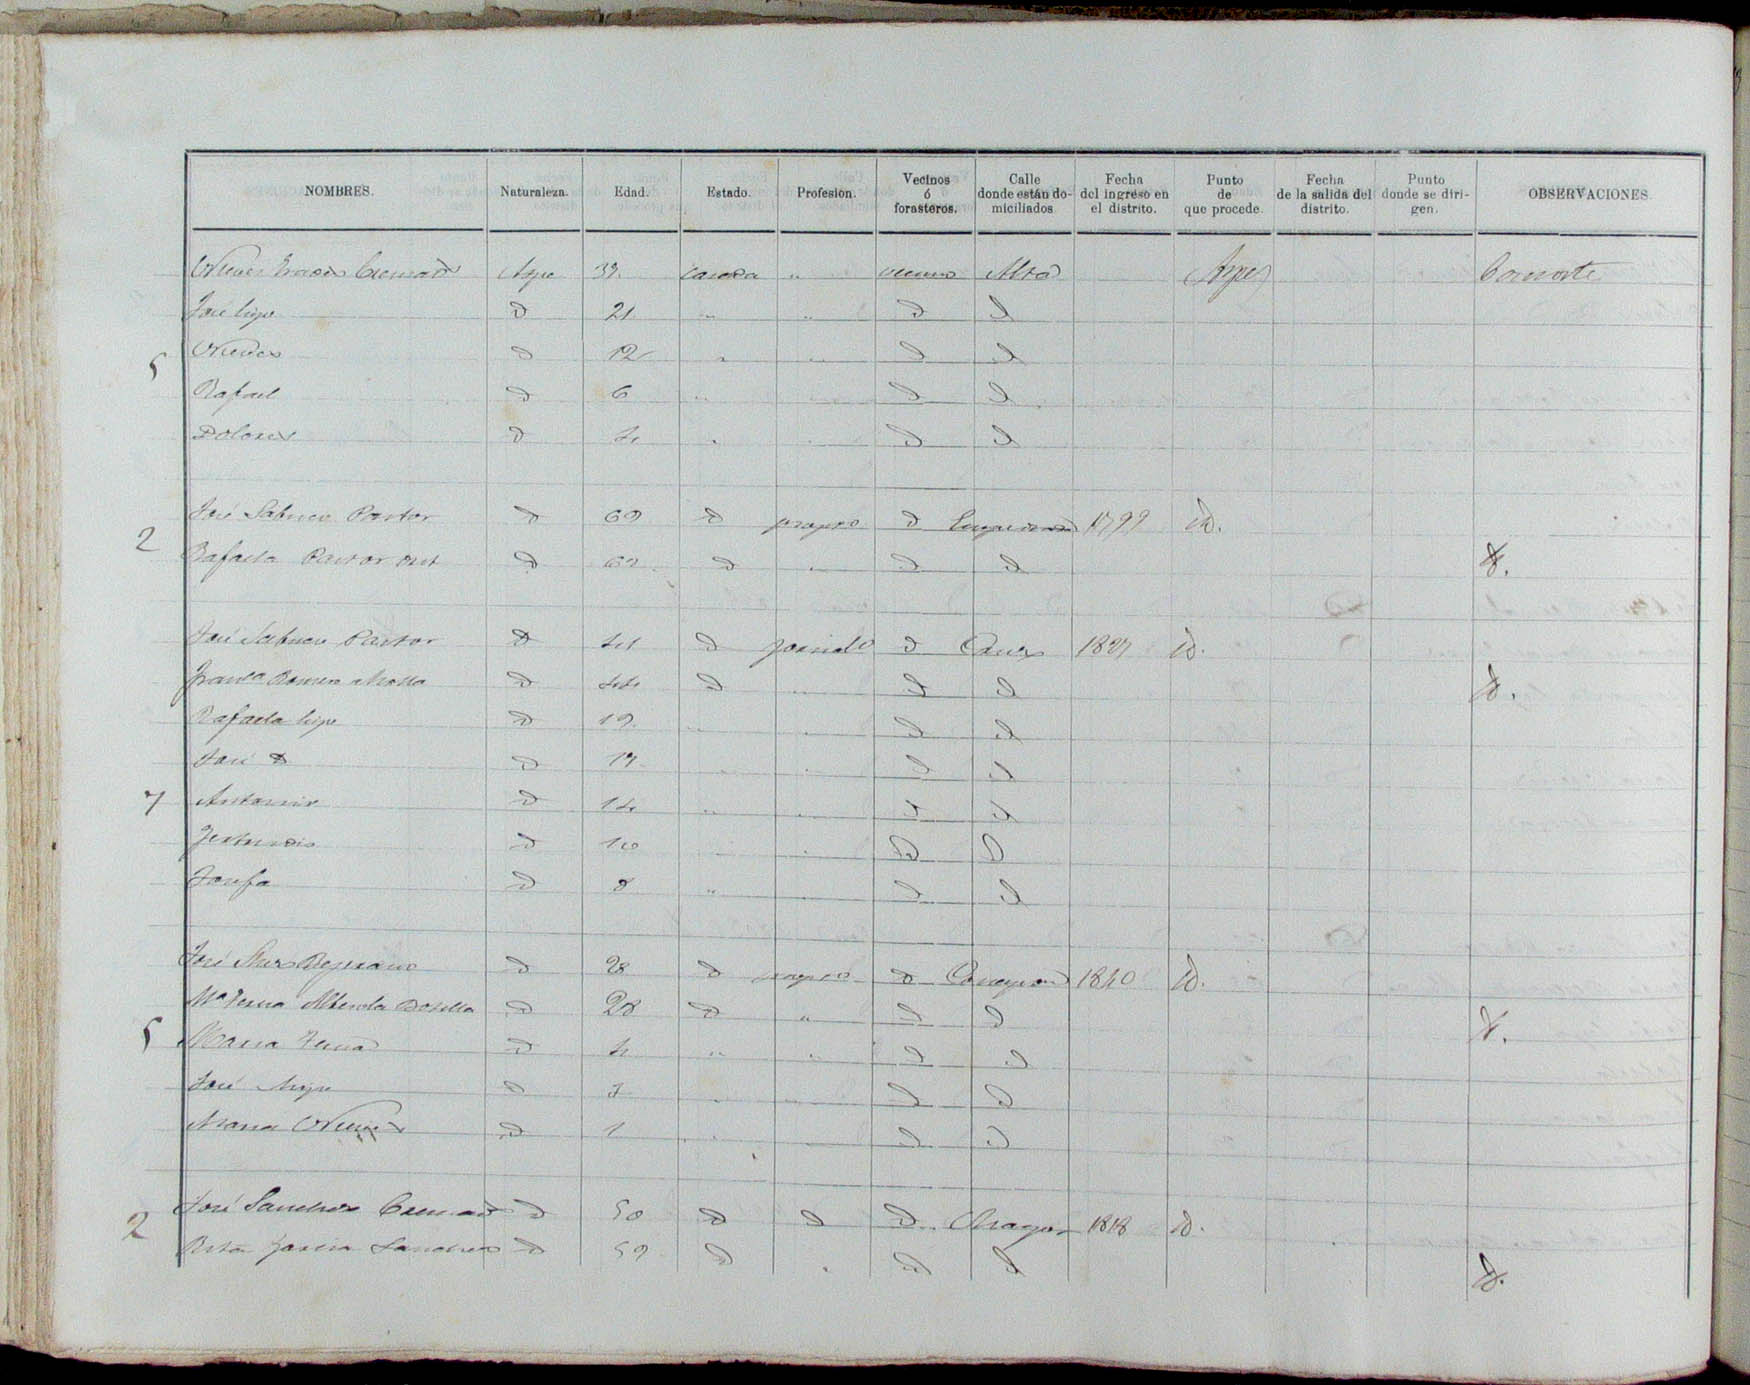 NOMBRES. Naturaleza. Edad. Estado. Profesion. Vecinos ó forasteros. Calle donde están domiciliados Fecha del ingreso en el distrito. Punto de que procede. Fecha de la salida del distrito. Punto donde se dirigen. OBSERVACIONES.
Nieves Cremad Aspe 39. casada " vecino Alta Aspe Consorte
José hijo D 21 " " D D
5 Nieves D 12 " " D D
Rafael D 6 " " D D
Dolores D 4 " " D D
José Sabuco Pastor D 69 D propio D 1799 id.
2 Rafaela Pastor D 62 D " D D D.
José Sabuco Pastor D 41 D jornalo D Cruz 1827 id.
Franca Romero Molla D 44 D " D D D.
Rafaela hija D 19 " " D D
José D D 17 " " D D
7 Antonio D 14 " " D D
Jertrudis D 10 " " D D
Josefa D 8 " " D D
José Bejerano D 28 D propio D Concepcion 1840 id.
Ma Teresa Botella D 28 D " D D D.
5 Maria Teresa D 4 " " D D
José hijo D 3 " " D D
Maria Nieves D 1 " " D D
José Sanchez Cremad D 50 D D D 1818 id.
2 Rita Garcia Sanchez D 59 D " D D D.